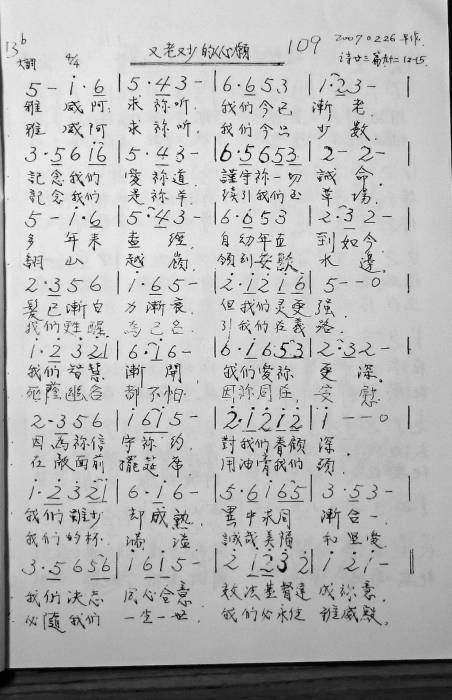 13b 又老又少的心願 109 2007.02.26 早作.
大調 4/4 詩廿三篇 九十二 12-15
5 - i · 6 | 5 · 4 3 - | 6 · 6 5 3 | 1 · 2 3 - |
雅 威 阿 求 祢 听. 我 們 今 已 漸 老.
雅 威 阿 求 祢 听. 我 們 今 只 少 数.
3 · 5 6 i6 | 5 · 4 3 - | 6 · 5 6 5 3 | 2 - 2 - |
記 念 我 們 愛 祢 道 謹 守 祢 一 切 誡 命.
記 念 我 們 是 祢 羊 引 我 們 草 場.
5 - i · 6 | 5 · 4 3 - | 6 · 6 5 3 | 2 · 3 2 - |
多 年 来 查 經 自 幼 年 直 到 如 今
翻 山 越 嶺 領 到 安 歇 水 邊
2 · 3 5 6 | 1 · 6 5 - | 2 · i 2 i 6 | 5 - - 0 |
髮 已 漸 白 力 漸 衰. 但 我 們 灵 更 强.
我 們 甦 醒 為 己 名 引 我 們 在 義 路.
1 · 2 3 2 1 | 6 · i 6 - | 6 · i 6 5 3 | 2 · 3 2 - |
我 們 智 慧 漸 開 我 們 愛 祢 更 深.
死 蔭 幽 谷 都 不 怕 因 祢 同 在, 安 慰
2 · 3 5 6 | i 6 i 5 - | 2 · i 2 i 2 | i - - 0 |
因 為 祢 信 守 祢 約 對 我 們 眷 顧 深.
在 敵 面 前 擺 筵 席 用 油 膏 我 們 頭.
1 · 2 3 2 1 | 6 · i 6 - | 5 · 6 i 6 5 | 3 · 5 3 - |
我 們 雖 少 却 成 熟. 異 中 求 同 漸 合 一.
我 們 的 杯 滿 溢 誠 哉 美 和 愛
3 · 5 6 5 6 | i 6 i 5 - | 2 i 2 3 2 | i 2 i - ‖
我 們 决 志 同 心 合 意 效 法 基 督 達 成 祢 意.
必 隨 我 們 一 生 一 世. 我 們 必 永 住 雅 威 殿.